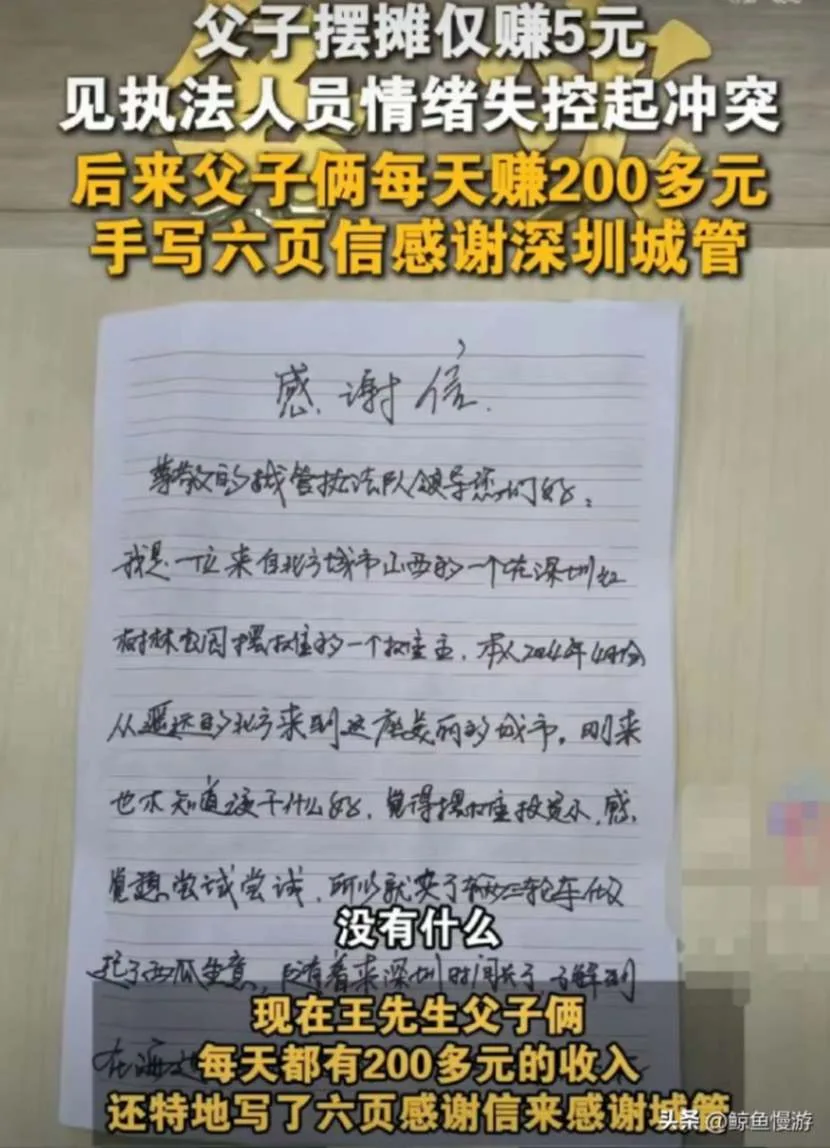 父子摆摊仅赚5元
见执法人员情绪失控起冲突
后来父子俩每天赚200多元
手写六页信感谢深圳城管
感谢信
尊敬的城管执法队领导您们好。
我是一位来自北方城市山西的一个在深圳红
树林公园摆摊的一个摊主，本人2024年4月份
从遥远的北方来到这座美丽的城市，刚来
也不知道该干什么好，觉得摆摊投资小，感
觉想尝试尝试，所以就买了辆三轮车做
没有什么
起了西瓜生意，着来深圳时间长了，了解到
在海边
现在王先生父子俩
每天都有200多元的收入
还特地写了六页感谢信来感谢城管
头条 @鲸鱼慢游